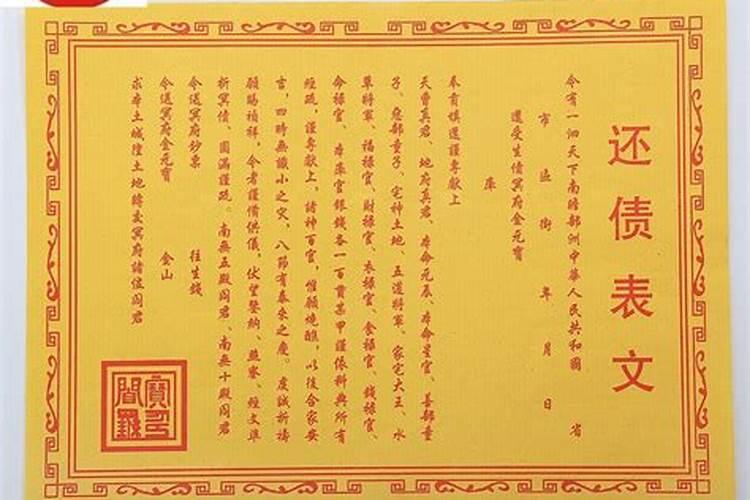 还债表文
今有一泗天下南瞻部洲中華人民共和國 省
市 區 街 年 月 日
還受生債冥府金元寶
庫
奉育填還謹專獻上
天曹真君、地府真君、本命元辰、本命星官、善部童
子、惡部童子、宅神土地、五道將軍、家宅大王、水
草將軍、福祿官、財祿官、衣祿官、食祿官、錢祿官、
命祿官、本庫官銀錢各一百貫某甲謹依科典所有
經疏，謹專獻上，諸神百官，惟願燒醮，以後合家安
言，四時無讖小之灾，八節有泰來之慶。虔誠祈禱
願賜禎祥，今者謹備供儀，伏望鑒納、燕寥、經文準
折冥債、圓滿謹疏。南無五殿閻君、南無十殿閻君
令送冥府鈔票 往生錢
令送冥府金元寶 金山
求本土城隍土地轉交冥府諸位閻君